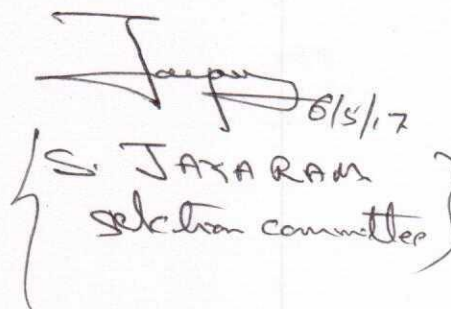 6/5/17
S. JAYARAM
selection committee